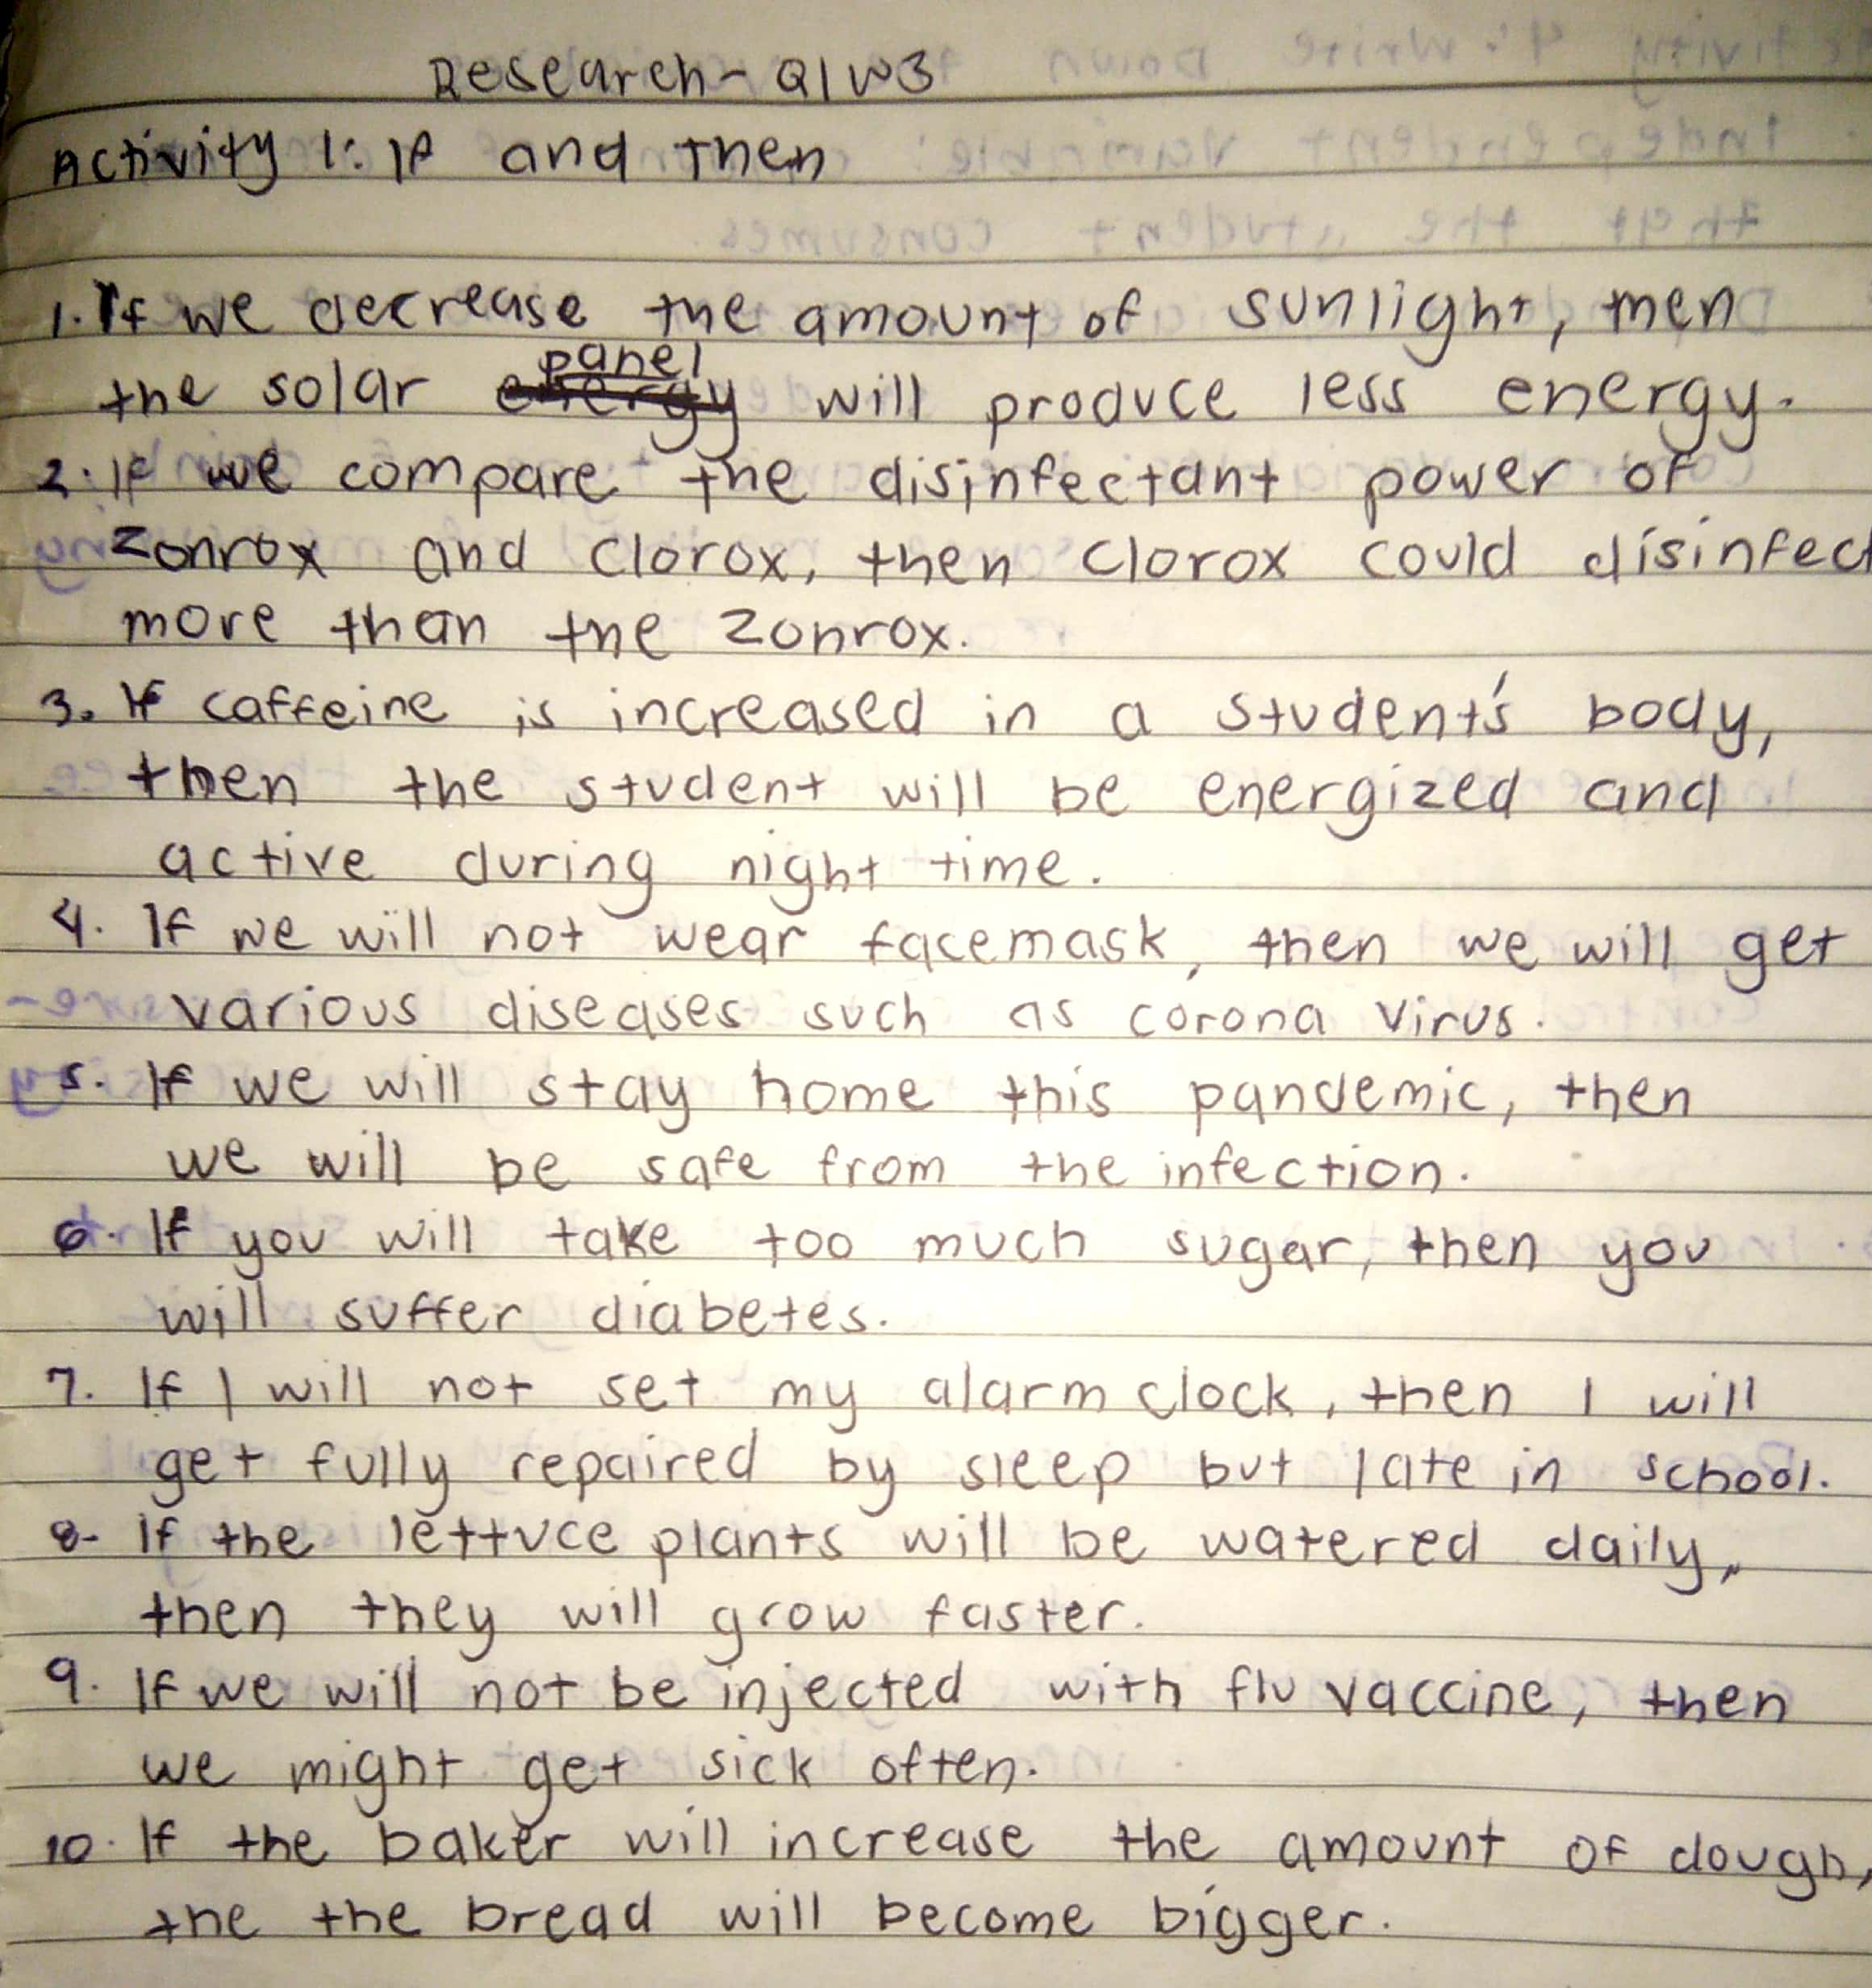 Research - Q1W3
Activity 1: If and Then
1. If we decrease the amount of sunlight, then
panel
the solar energy will produce less energy.
2. If we compare the disinfectant power of
Zonrox and Clorox, then Clorox could disinfect
more than the Zonrox.
3. If caffeine is increased in a student's body,
then the student will be energized and
active during night time.
4. If we will not wear facemask, then we will get
various diseases such as corona virus.
5. If we will stay home this pandemic, then
we will be safe from the infection.
6. If you will take too much sugar, then you
will suffer diabetes.
7. If I will not set my alarm clock, then I will
get fully repaired by sleep but late in school.
8- If the lettuce plants will be watered daily,
then they will grow faster.
9. If we will not be injected with flu vaccine, then
we might get sick often.
10. If the baker will increase the amount of dough,
the the bread will become bigger.